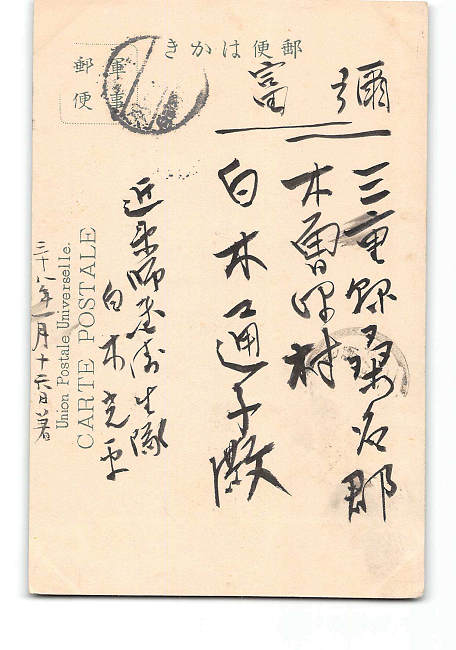 郵便はかき
軍事
郵便
彌
富
三重縣桑名郡
木曽岬村
白木通子殿
近衛師団衛生隊
白木
三十八年一月十六日着
Union Postale Universelle.
CARTE POSTALE